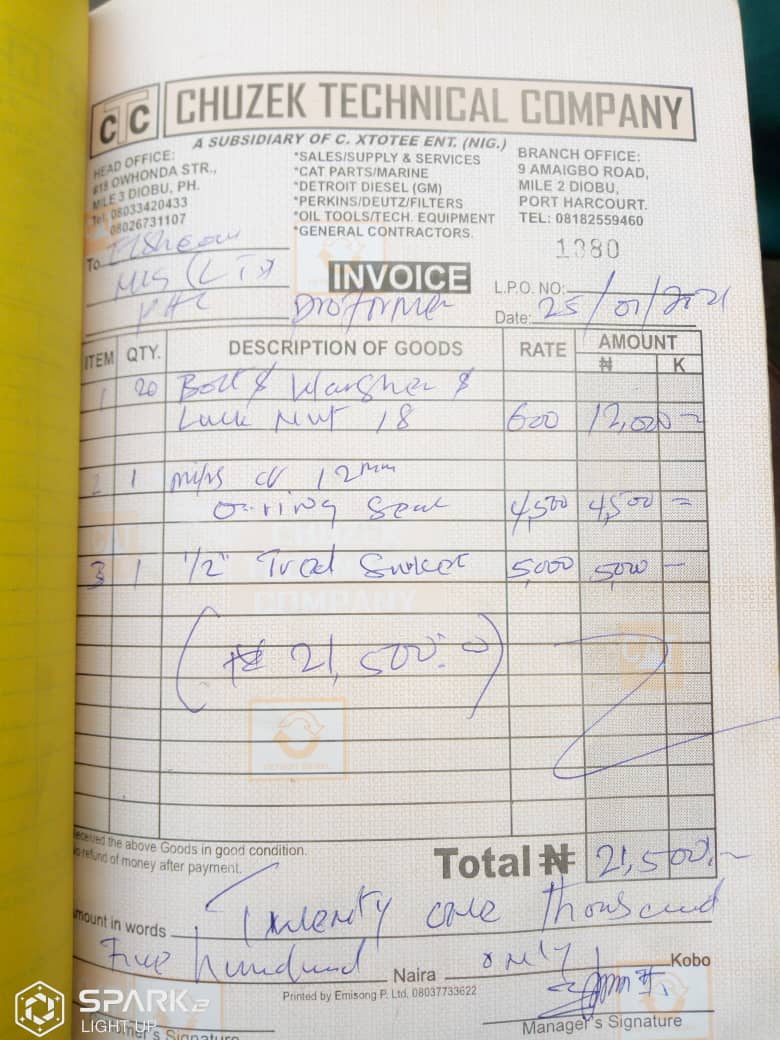 CTC CHUZEK TECHNICAL COMPANY
A SUBSIDIARY OF C. XTOTEE ENT. (NIG.)
HEAD OFFICE:
#18 OWHONDA STR.,
MILE 3 DIOBU, PH.
Tel: 08033420433
08026731107
*SALES/SUPPLY & SERVICES
*CAT PARTS/MARINE
*DETROIT DIESEL (GM)
*PERKINS/DEUTZ/FILTERS
*OIL TOOLS/TECH. EQUIPMENT
*GENERAL CONTRACTORS.
BRANCH OFFICE:
9 AMAIGBO ROAD,
MILE 2 DIOBU,
PORT HARCOURT.
TEL: 08182559460
1380
To
PHC
INVOICE
L.P.O. NO:
Date: 25/01/2021
ITEM QTY. DESCRIPTION OF GOODS RATE AMOUNT
₦ K
1 20 Bolt & Washer &
Lock Nut 18 600 12,000 =
2 1 12mm
O-ring Seal 4,500 4,500 =
3 1 1/2" Socket 5,000 5,000 -
(₦ 21,500:=0)
CAT
CHUZEK
COMPANY
CAT
DETROIT DIESEL
Received the above Goods in good condition.
No refund of money after payment.
Total ₦ 21,500:-
Amount in words Twenty one thousand
Five hundred Naira only Kobo
Printed by Emisong P. Ltd. 08037733622
Customer's Signature
Manager's Signature
SPARK 2
LIGHT UP